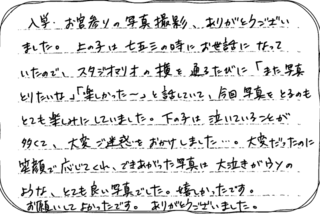 入学、お宮参りの写真撮影、ありがとうござい
ました。上の子は七五三の時にお世話になって
いたので、スタジオマリオの横を通るたびに「また写真
とりたいな」「楽しかった〜」と話していて、今回写真をとるのも
とても楽しみにしていました。下の子は泣いていることが
多くて、大変ご迷惑をおかけしました…。大変だったのに
笑顔で応じてくれ、できあがった写真は大泣きがウソの
ような、とても良い写真でした。嬉しかったです。
お願いしてよかったです。ありがとうございました。